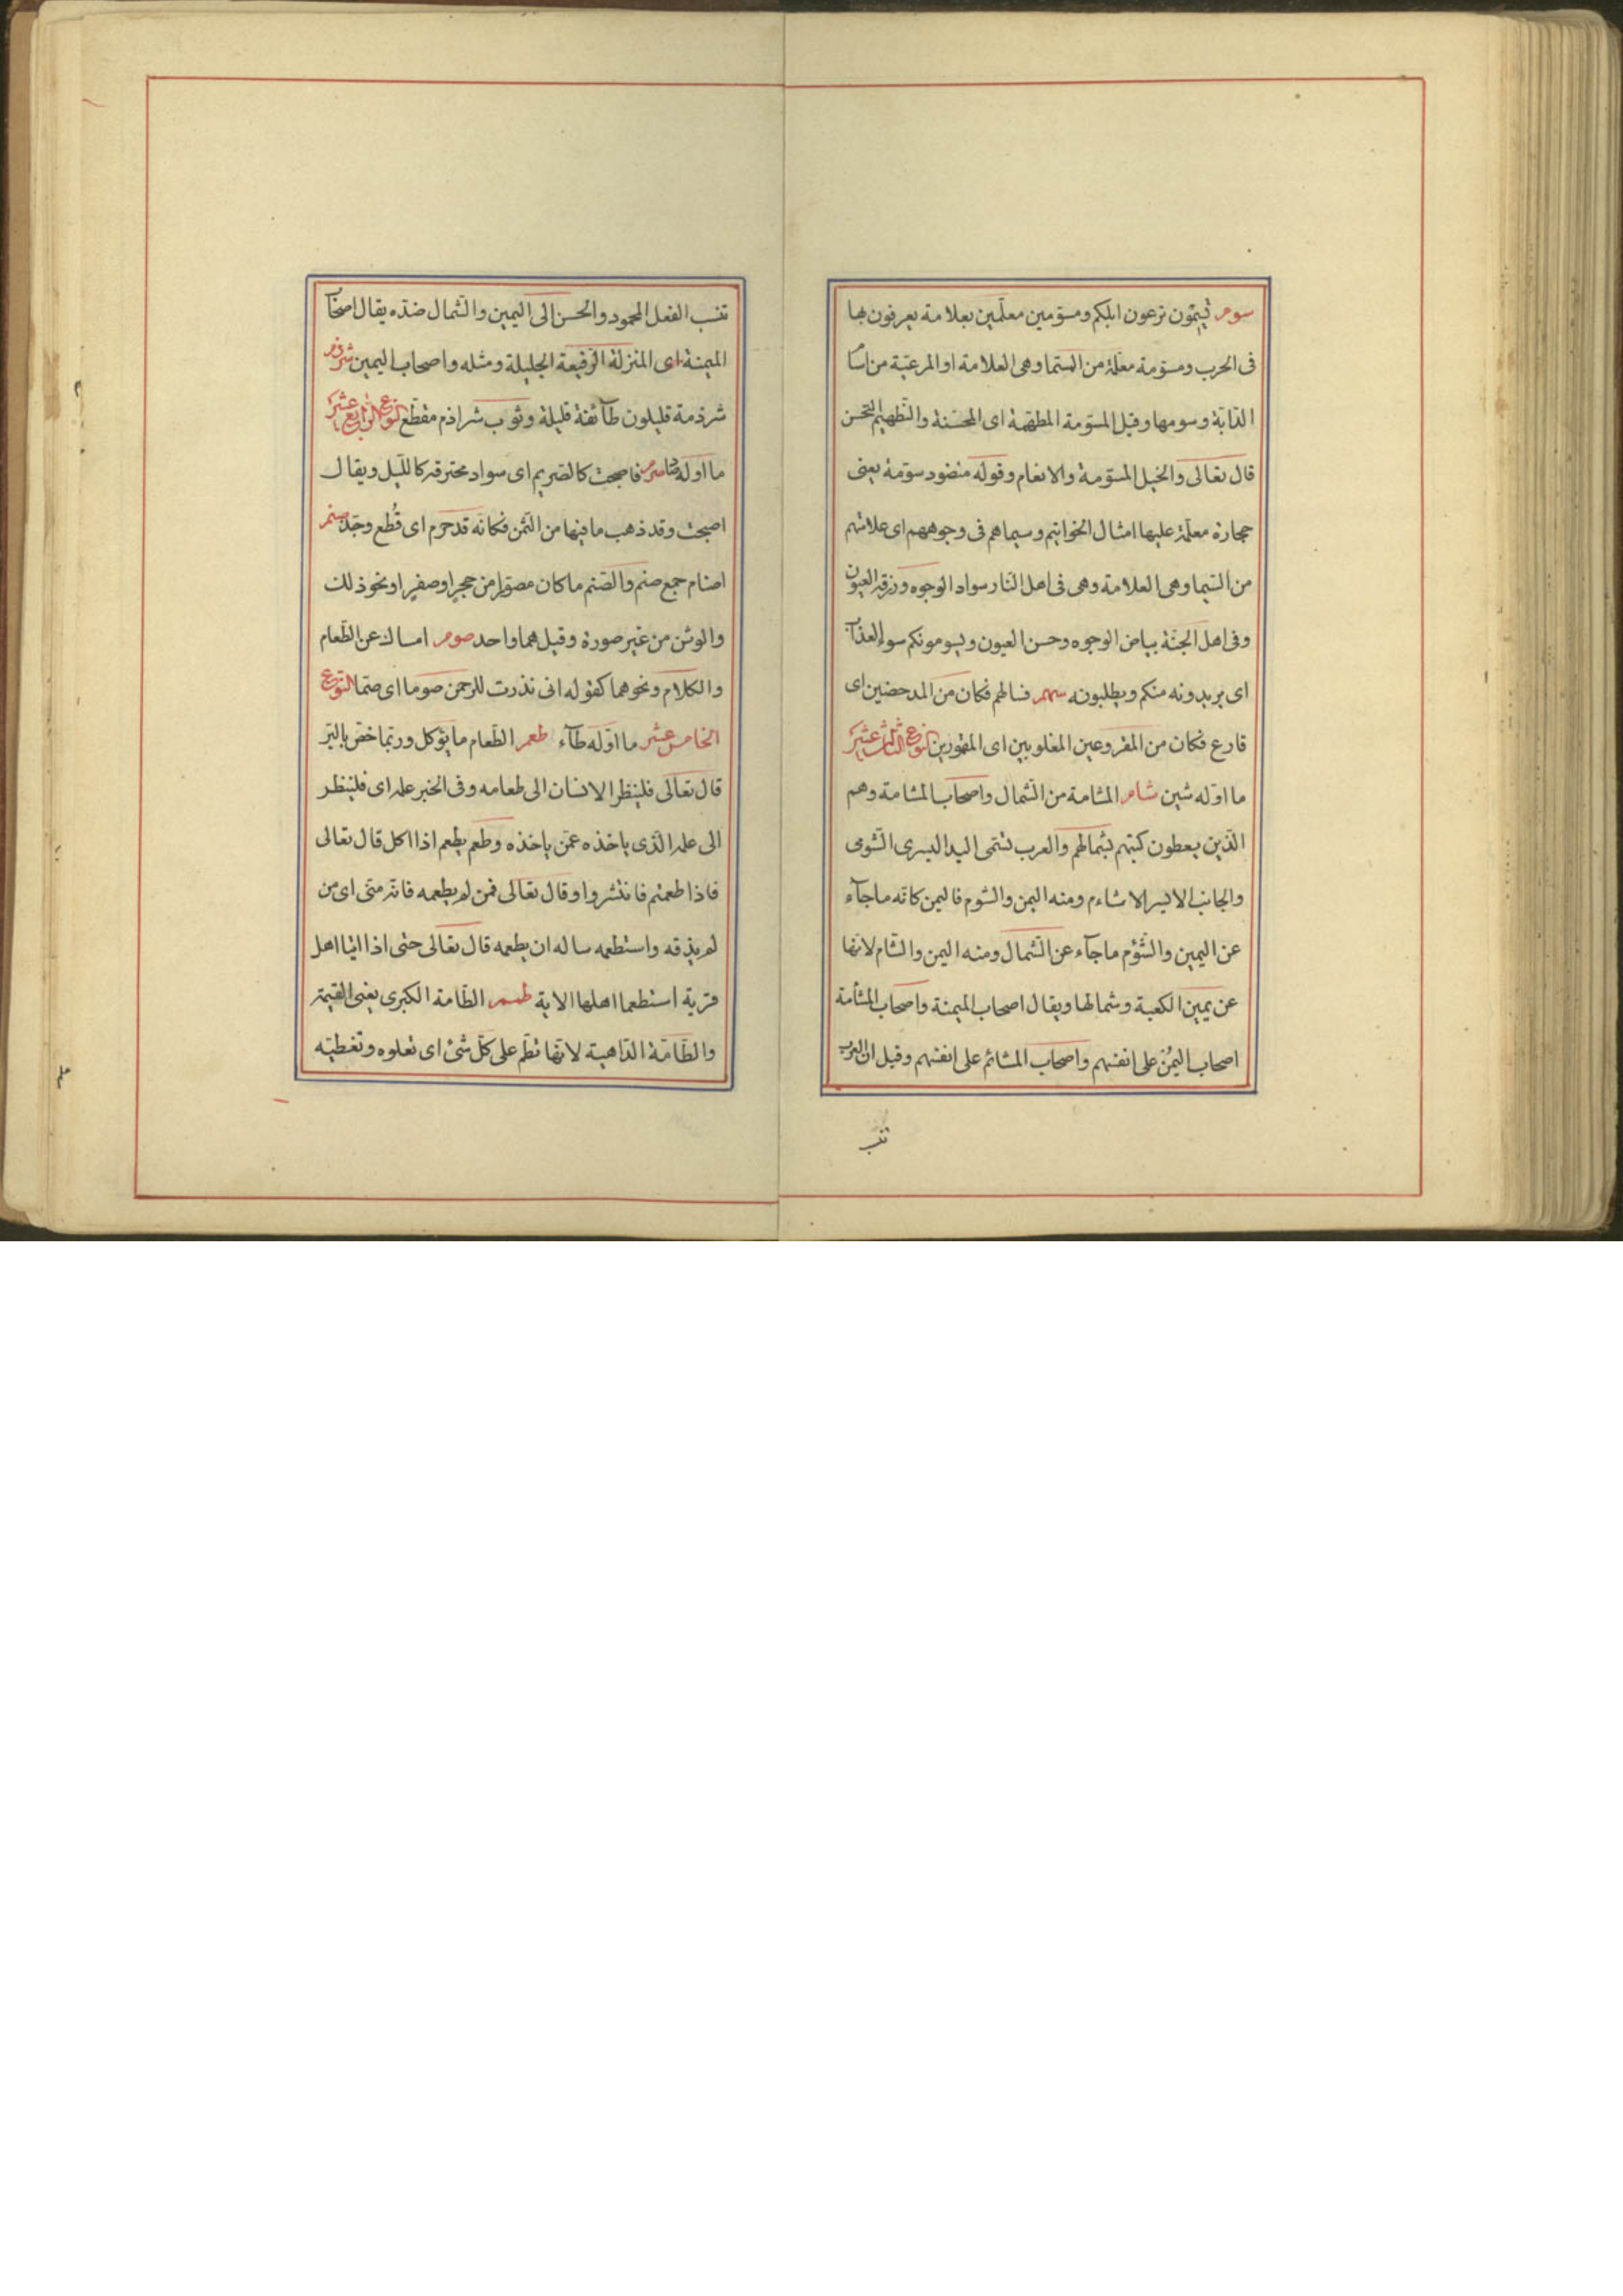 سوم تسیمون ترعون ابلکم ومسوّمین معلّمین بعلامة یعرفون بها
فی الحرب ومسوّمة معلّمة من السّیما وهی العلامة او المرعیّة من اسا
الدّابّة وسومها وقیل المسوّمة المطهّمة ای المحسّنة والتّطهیم التحسن
قال تعالی والخیل المسوّمة والانعام وقوله منضود مسوّمة یعنی
حجارة معلّمة علیها امثال الخواتیم وسیماهم فی وجوههم ای علامتهم
من السّیما وهی العلامة وهی فی اهل النّار سواد الوجوه وزرقة العیون
وفی اهل الجنّة بیاض الوجوه وحسن العیون ویسومونکم سوء العذاب
ای یریدونه منکم ویطلبونه سهم فساهم فکان من المدحضین ای
قارع فکان من المقروعین المغلوبین ای المقهورین النوع الثالث عشر
ما اوّله شین شام المشامة من الشّمال واصحاب المشامة وهم
الّذین یعطون کتبهم بشمالهم والعرب تسمّی الید الیسری الشّومی
والجانب الایسر الاشاءم ومنه الیمن والشوم فالیمن کانّه ماجآء
عن الیمین والشّؤم ماجآء عن الشّمال ومنه الیمن والشّام لانّها
عن یمین الکعبة وشمالها ویقال اصحاب المیمنة واصحاب المشأمة
اصحاب الیمُن علی انفسهم واصحاب المشائم علی انفسهم وقیل ان العرب
تنسب
تنسب الفعل المحمود والحسن الی الیمین والشّمال ضدّه یقال اصحاب
المیمنة ای المنزلة الرّفیعة الجلیلة ومثله واصحاب الیمین شرذم
شرذمة قلیلون طآئفة قلیلة وثوب شراذم مقطّع النوع الرابع عشر
ما اوله صاد صرم فاصبحت کالصّریم ای سواد محترقة کاللّیل ویقال
اصبحت وقد ذهب ما فیها من الثّمن فکانّه قد صرم ای قُطع وجّد صنم
اصنام جمع صنم والصّنم ما کان مصوّرا من حجرٍ او صفرٍ او نحو ذلک
والوثن من غیر صورة وقیل هما واحد صوم امساک عن الطّعام
والکلام ونحوهما کقوله انی نذرت للرحمن صوما ای صمتا النّوع
الخامس عشر ما اوّله طآء طعم الطّعام ما یؤکل وربّما خصّ بالبّر
قال تعالی فلینظر الانسان الی طعامه وفی الخبر علمه ای فلینظر
الی علمه الّذی یاخذه عمّن یاخذه وطعم یطعم اذا اکل قال تعالی
فاذا طعمتم فانتشروا وقال تعالی فمن لم یطعمه فانّه منّی ای من
لم یذقه واستطعمه ساله ان یطعمه قال تعالی حتی اذا اتیا اهل
قریة استطعما اهلها الایة طمم الطّامة الکبری یعنی القیمة
والطّامّة الدّاهیة لانّها تطّم علی کلّ شئ ای تعلوه وتغطیّه